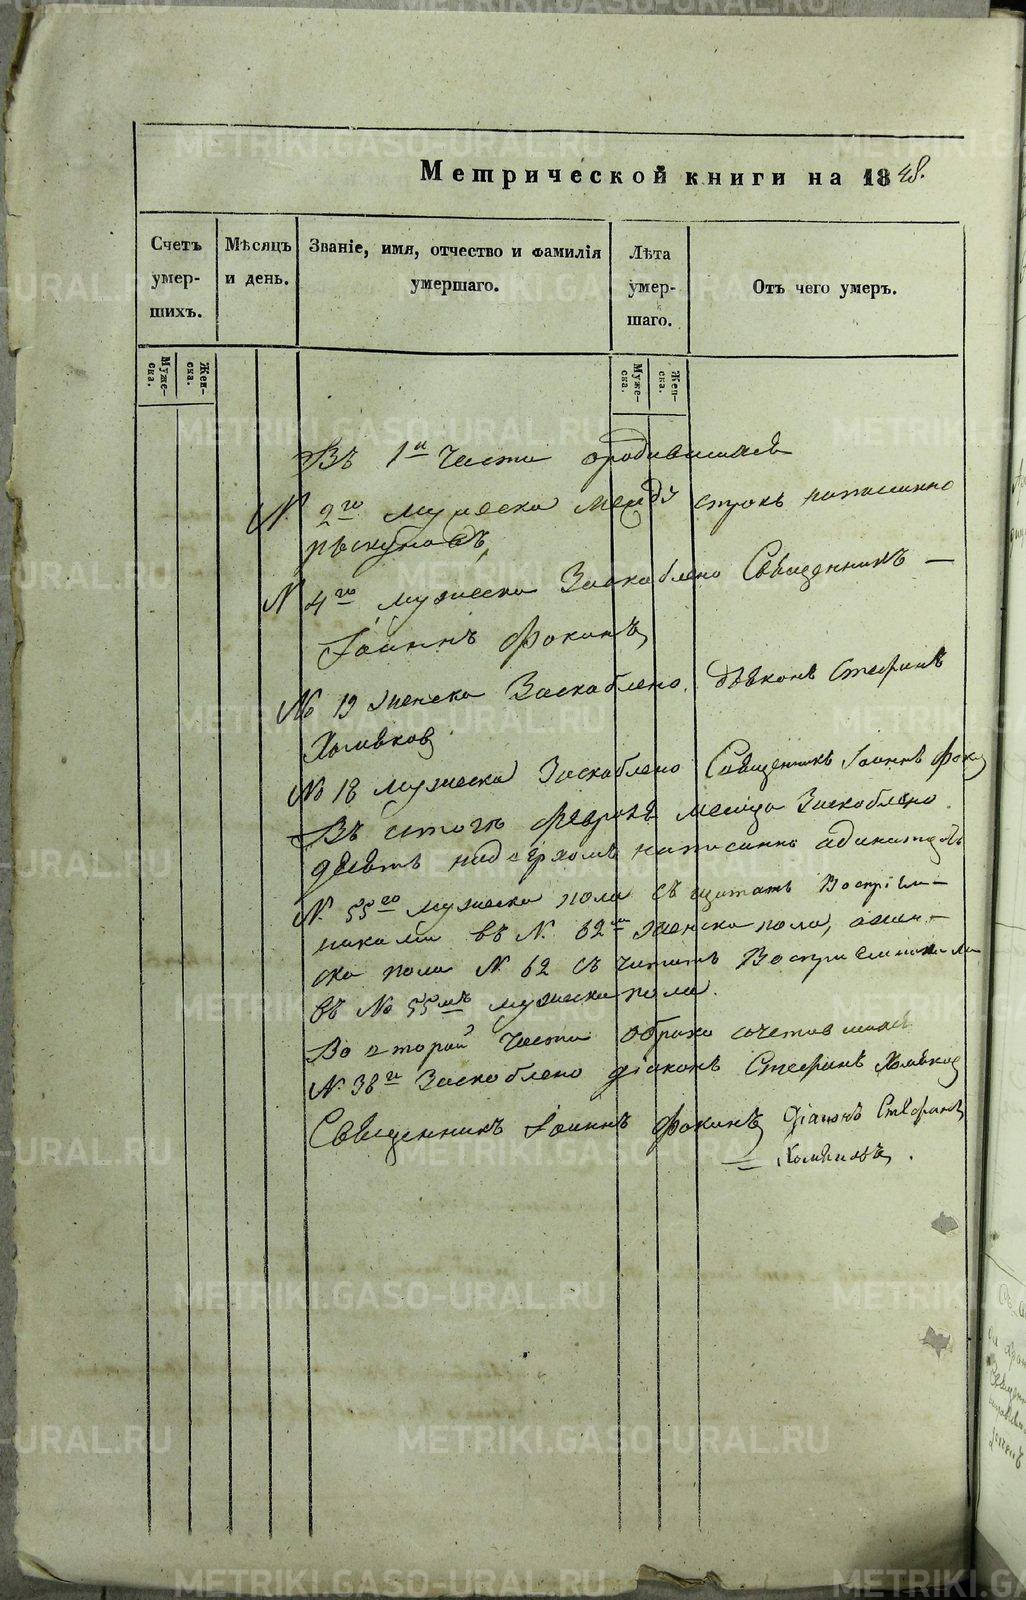 Метрической книги на 1848.
Счетъ умер-шихъ.
Мѣсяцъ и день.
Званіе, имя, отчество и фамилія умершаго.
Лѣта умер-шаго.
Отъ чего умеръ.
Муже-ска.
Жен-ска.
Муже-ска.
Жен-ска.
Въ 1й части ородившихся
№ 2го мужеска между строкъ написанно
№ 4го мужеска Заскоблено Священникъ —
Іоаннъ Фокинъ
№ 19 женска Заскоблено. дьяконъ Стефанъ
Хомяков
№ 18 мужеска Заскоблено Священникъ Іоаннъ Фокин
Въ итогѣ Февраля месяца Заскоблено
девять надсерхомъ написанно адинатцеть
№ 55го мужеска пола съчитать Воспріем-
никами въ № 62м женска пола, ажен-
ска пола № 62 съчитать Воспріемниками
въ № 55мъ мужеска пола.
Во второй части обрако сочетавшихся
№ 38й Заскоблено діаконъ Стефанъ Хомяков
Священникъ Іоаннъ Фокинъ Діаконъ Стефанъ
Хомяковъ.
METRIKI.GASO-URAL.RU